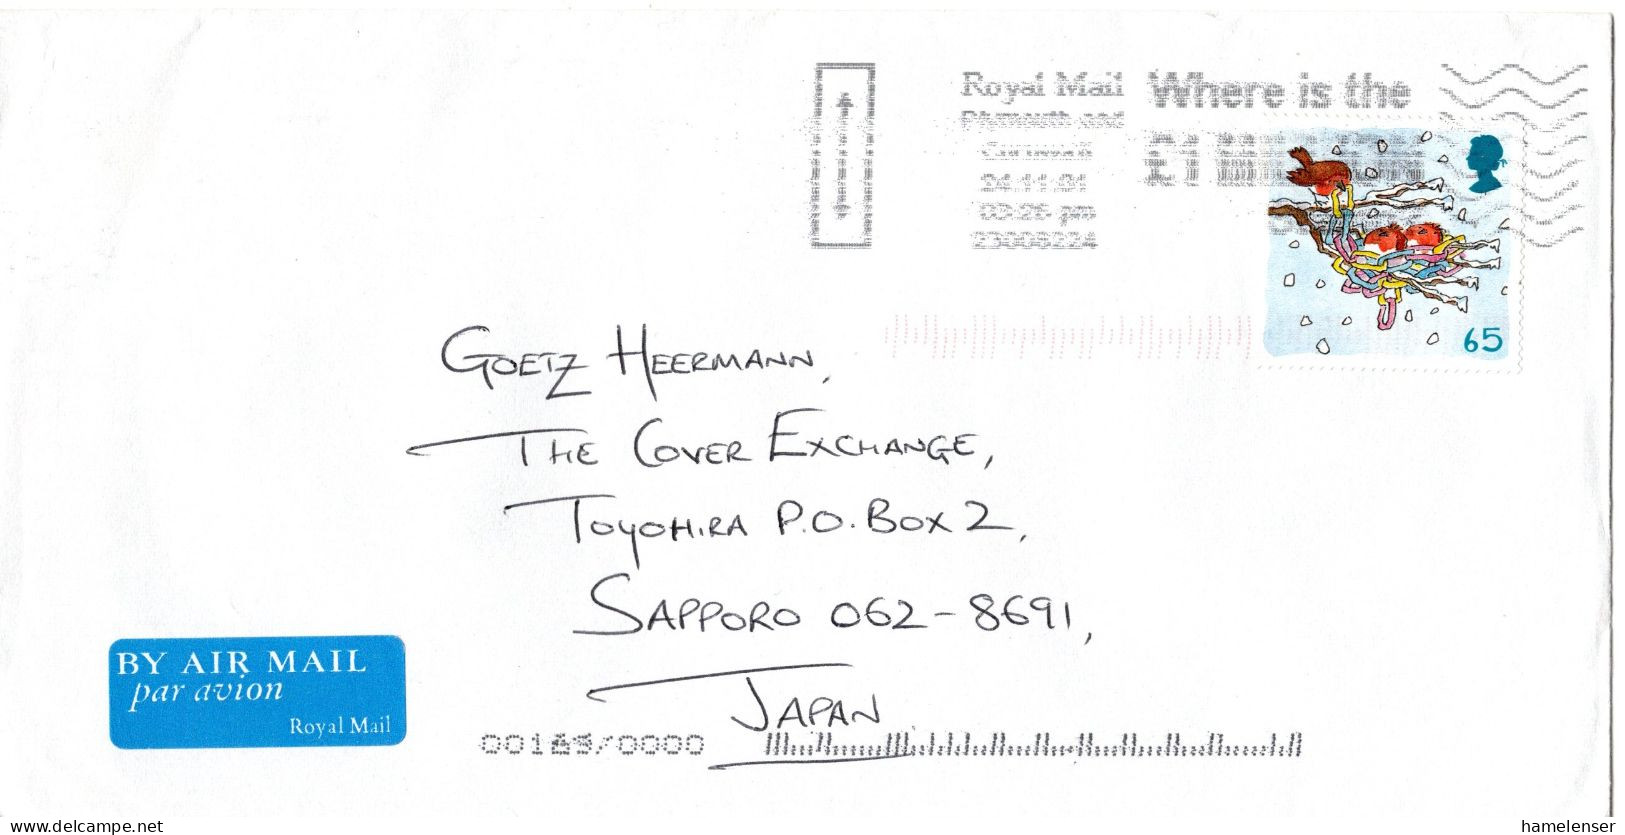 Royal Mail
Plymouth and
Cornwall
Where is the
£1
65
GOETZ HEERMANN,
THE COVER EXCHANGE,
TOYOHIRA P.O. BOX 2,
SAPPORO 062-8691,
JAPAN
BY AIR MAIL
par avion
Royal Mail
delcampe.net
hamelenser